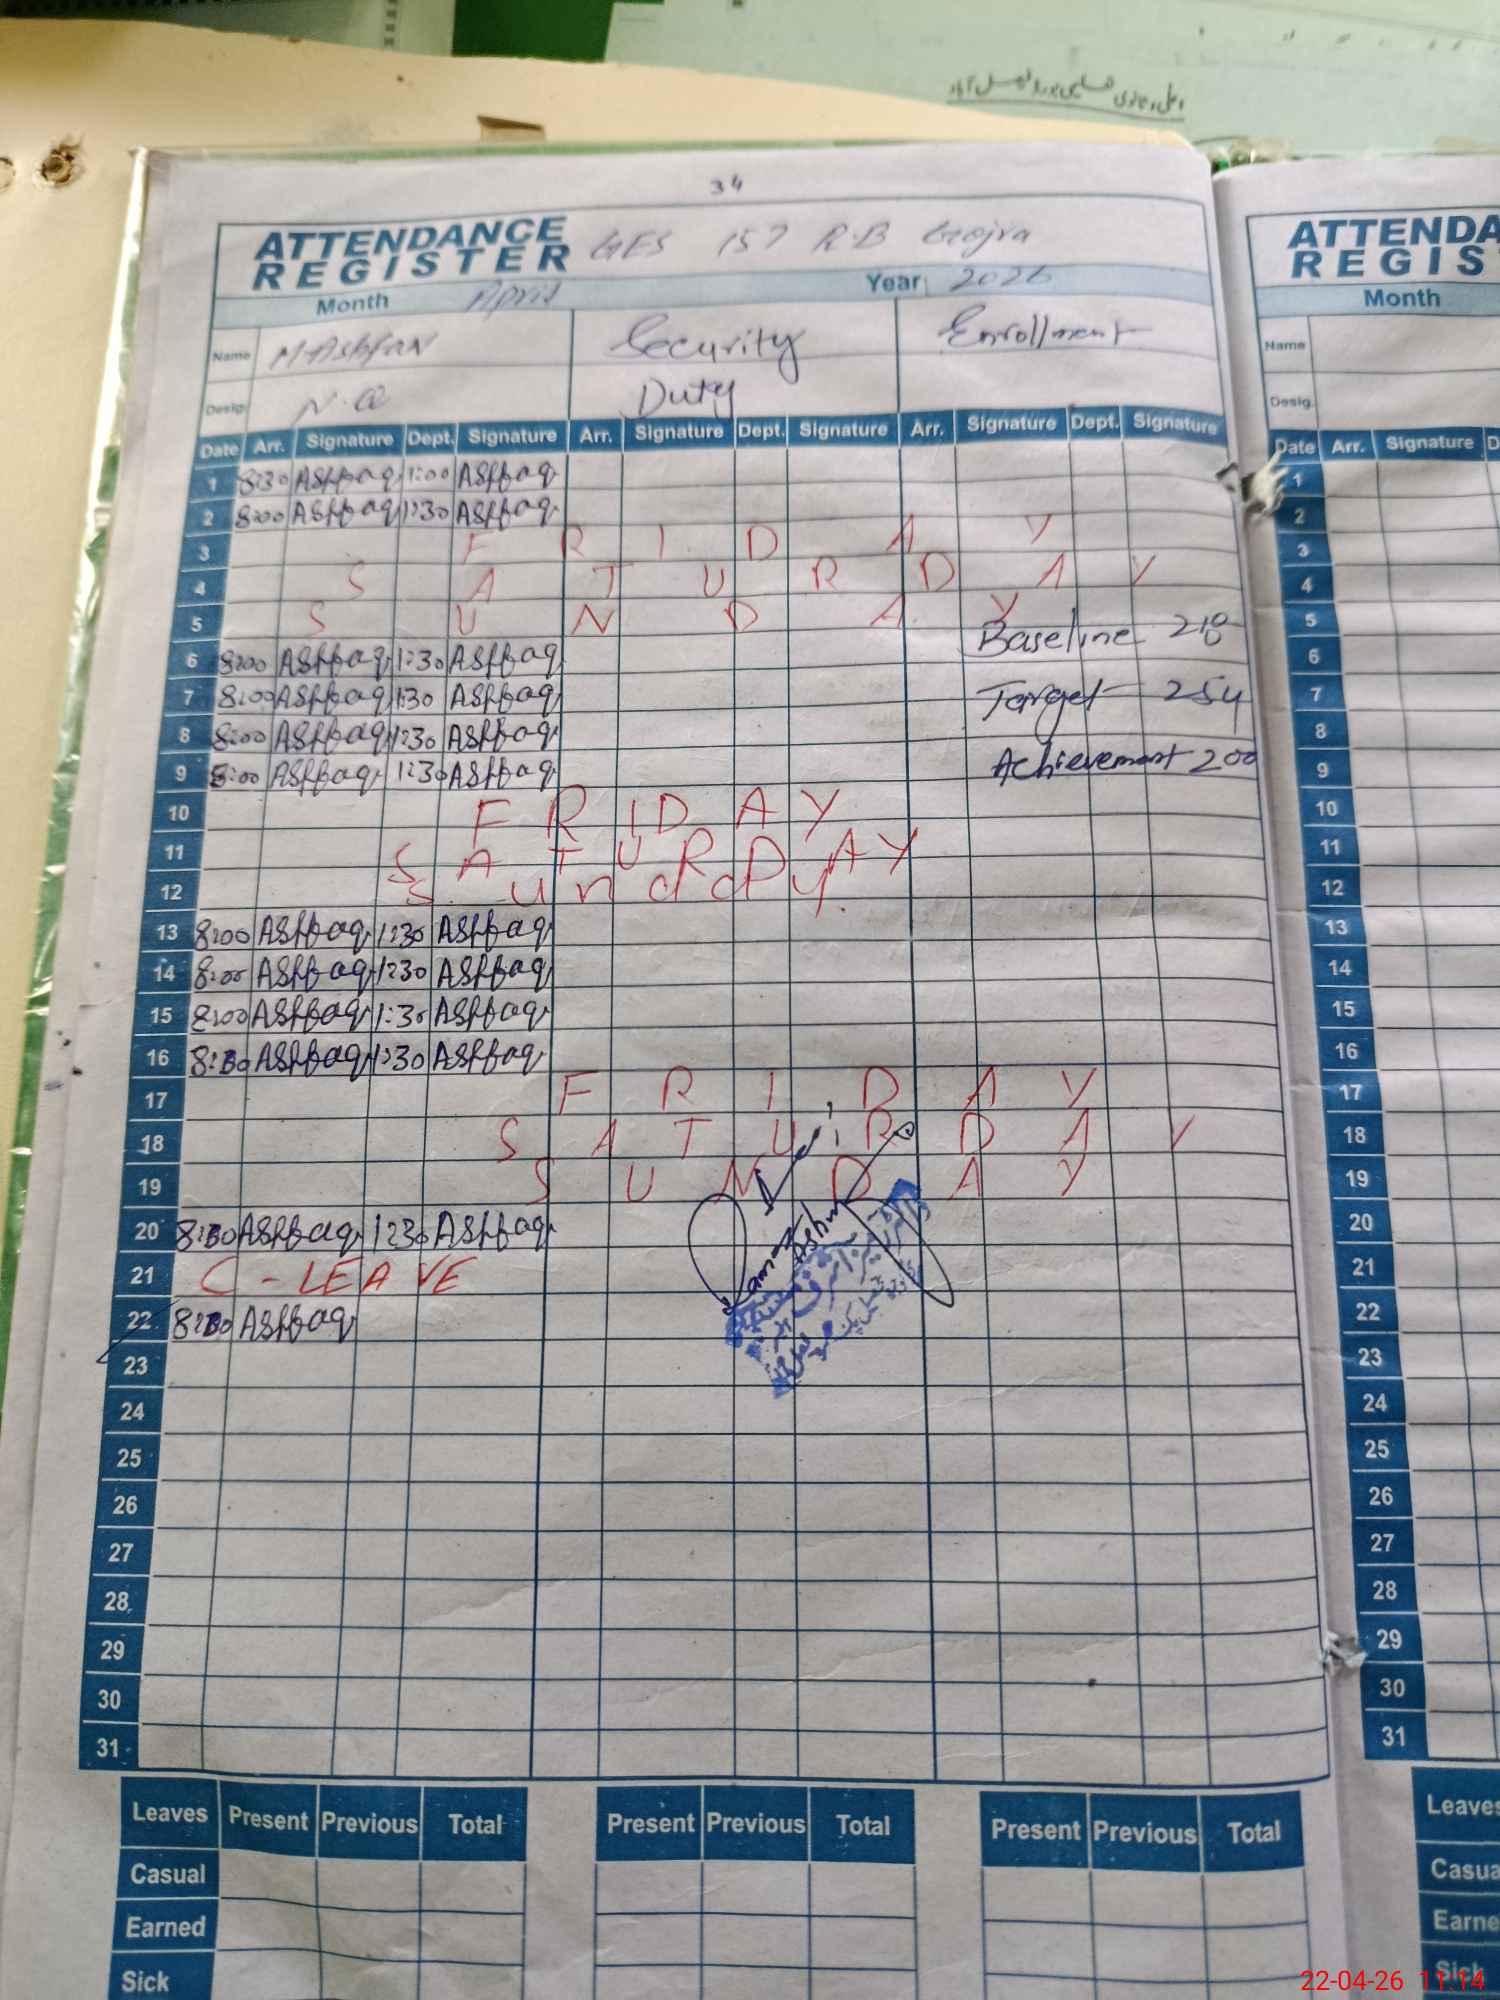 34
ATTENDANCE REGISTER GES 157 R-B Gojra
Month April Year 2026
Name M-Ashfaq Security Enrollment
Desig. N.Q Duty
Date Arr. Signature Dept. Signature Arr. Signature Dept. Signature Arr. Signature Dept. Signature
1 8:30 Ashfaq 1:00 Ashfaq
2 8:00 Ashfaq 1:30 Ashfaq
3 FRIDAY
4 SATURDAY
5 SUNDAY
6 8:00 Ashfaq 1:30 Ashfaq Baseline
7 8:00 Ashfaq 1:30 Ashfaq Target 254
8 8:00 Ashfaq 1:30 Ashfaq
9 8:00 Ashfaq 1:30 Ashfaq Achievement 200
10 FRIDAY
11 SATURDAY
12 Sunday
13 8:00 Ashfaq 1:30 Ashfaq
14 8:00 Ashfaq 1:30 Ashfaq
15 8:00 Ashfaq 1:30 Ashfaq
16 Ashfaq 1:30 Ashfaq
17 FRIDAY
18 SATURDAY
19 SUNDAY
20 Ashfaq 1:30 Ashfaq
21 C-LEAVE
22 Ashfaq
23
24
25
26
27
28
29
30
31
Leaves Present Previous Total Present Previous Total Present Previous Total
Casual
Earned
Sick
ATTENDA
REGIS
Month
Name
Desig.
Date Arr. Signature D
1
2
3
4
5
6
7
8
9
10
11
12
13
14
15
16
17
18
19
20
21
22
23
24
25
26
27
28
29
30
31
Leaves
Casua
Earne
Sick
22-04-26 11:14